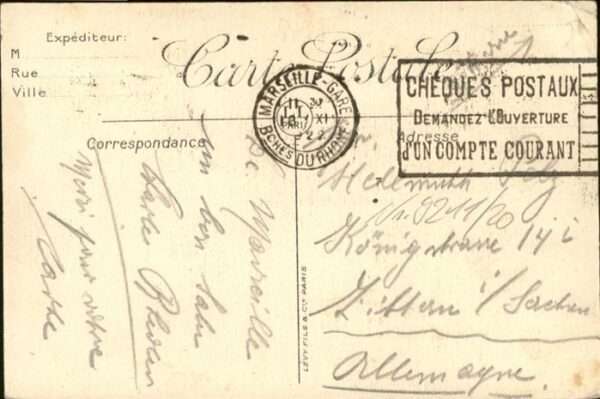 Expéditeur:
M
Rue
Ville
Carte Postale
MARSEILLE-GARE
BCHES DU RHONE
CHÈQUES POSTAUX
DEMANDEZ L'OUVERTURE
D'UN COMPTE COURANT
Correspondance
Adresse
De Marseille
un bon salu
Charles
Merci pour votre
Carte
Hellmuth
No. 9211/20
Königstrasse 14 i
Zittau i/ Sachsen
Allemagne.
LEVY FILS & Cie PARIS